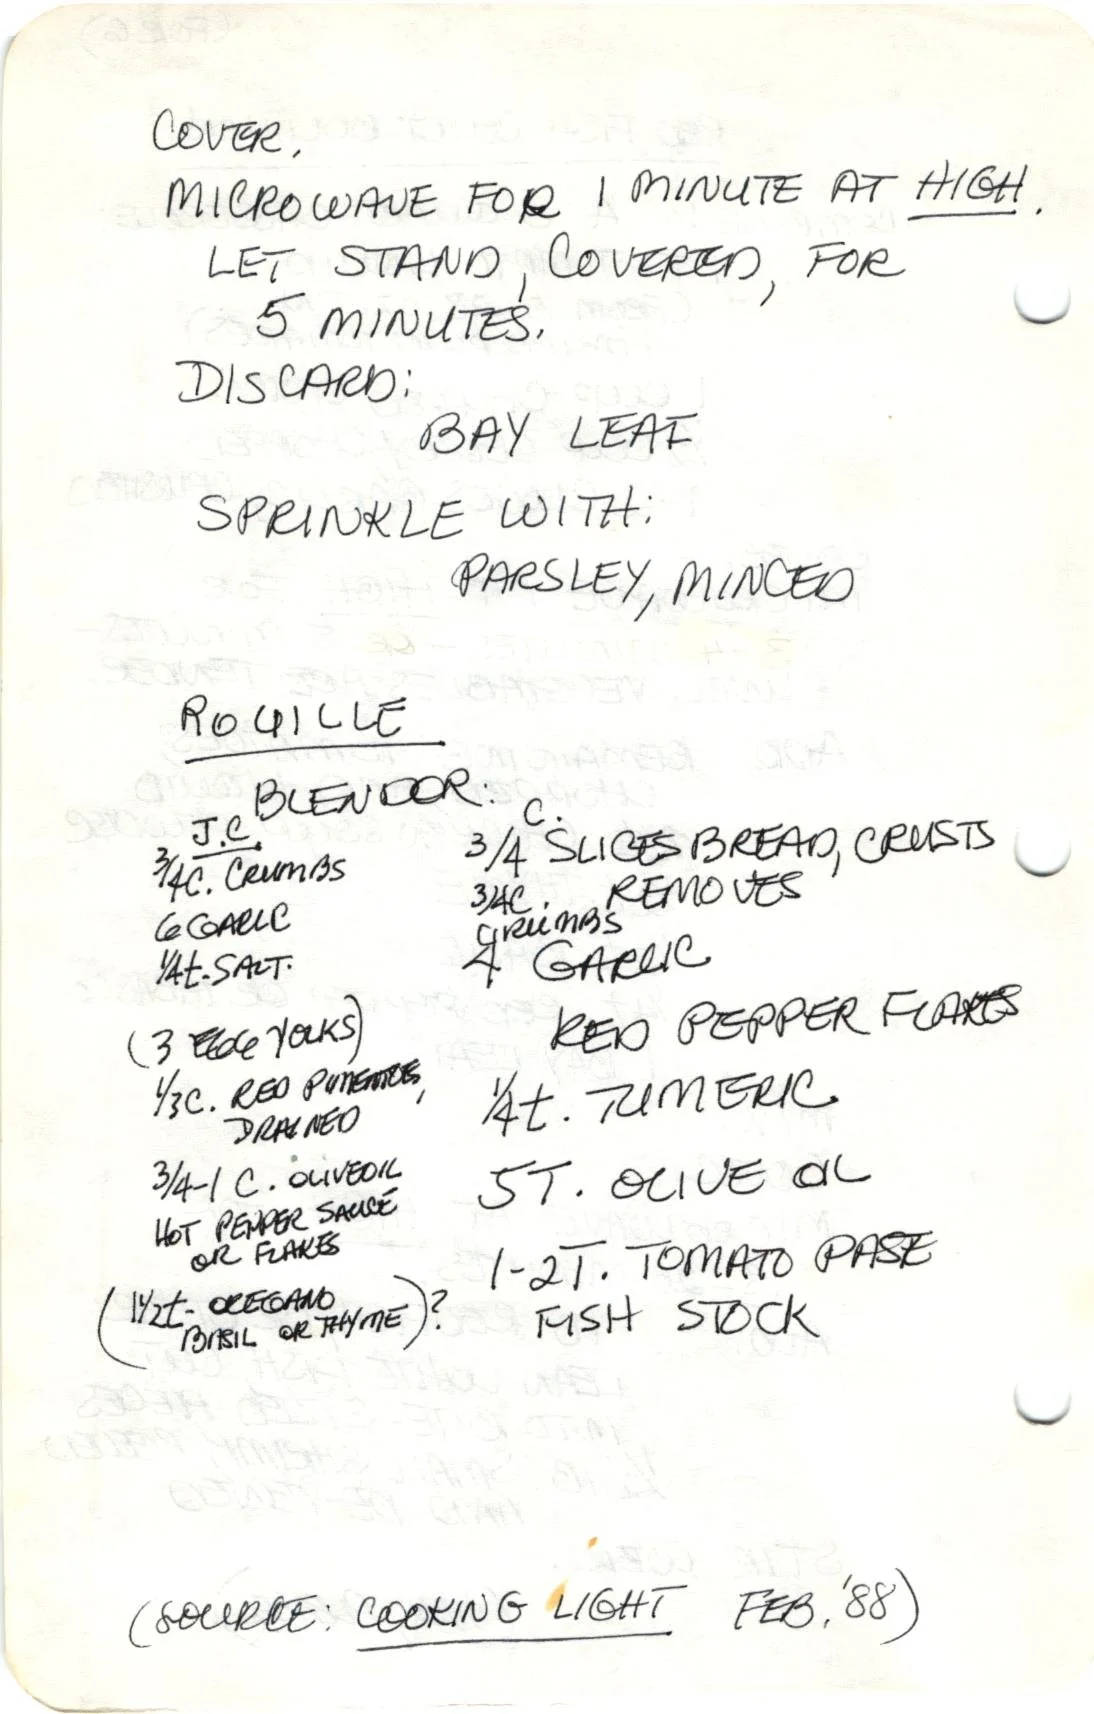 COVER.
MICROWAVE FOR 1 MINUTE AT HIGH.
LET STAND, COVERED, FOR
5 MINUTES.
DISCARD:
BAY LEAF
SPRINKLE WITH:
PARSLEY, MINCED
ROUILLE
BLENDOR:
J.C.
3/4C. CRUMBS
6 GARLIC
1/4t. SALT.
(3 EGG YOLKS)
1/3C. RED PIMENTOES,
DRAINED
3/4-1 C. OLIVE OIL
HOT PEPPER SAUCE
OR FLAKES
(1 1/2t. OREGANO
BASIL OR THYME)?
C.
3/4 SLICES BREAD, CRUSTS
REMOVES
3/4C.
CRUMBS
4 GARLIC
RED PEPPER FLAKES
1/4t. TUMERIC
5T. OLIVE OIL
1-2T. TOMATO PASE
FISH STOCK
(SOURCE: COOKING LIGHT FEB. '88)